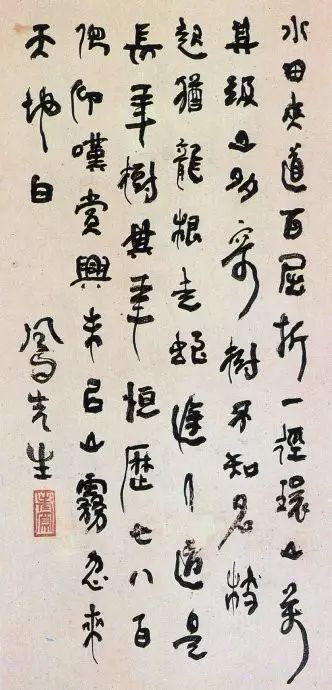 水田夾道百屈折一徑環山萬
其級山多奇樹不知名枝
起猶龍根走蛇道是
長年樹其年恒歷七八百
俯仰嘆賞興未已山霧忽來
天地白
先生